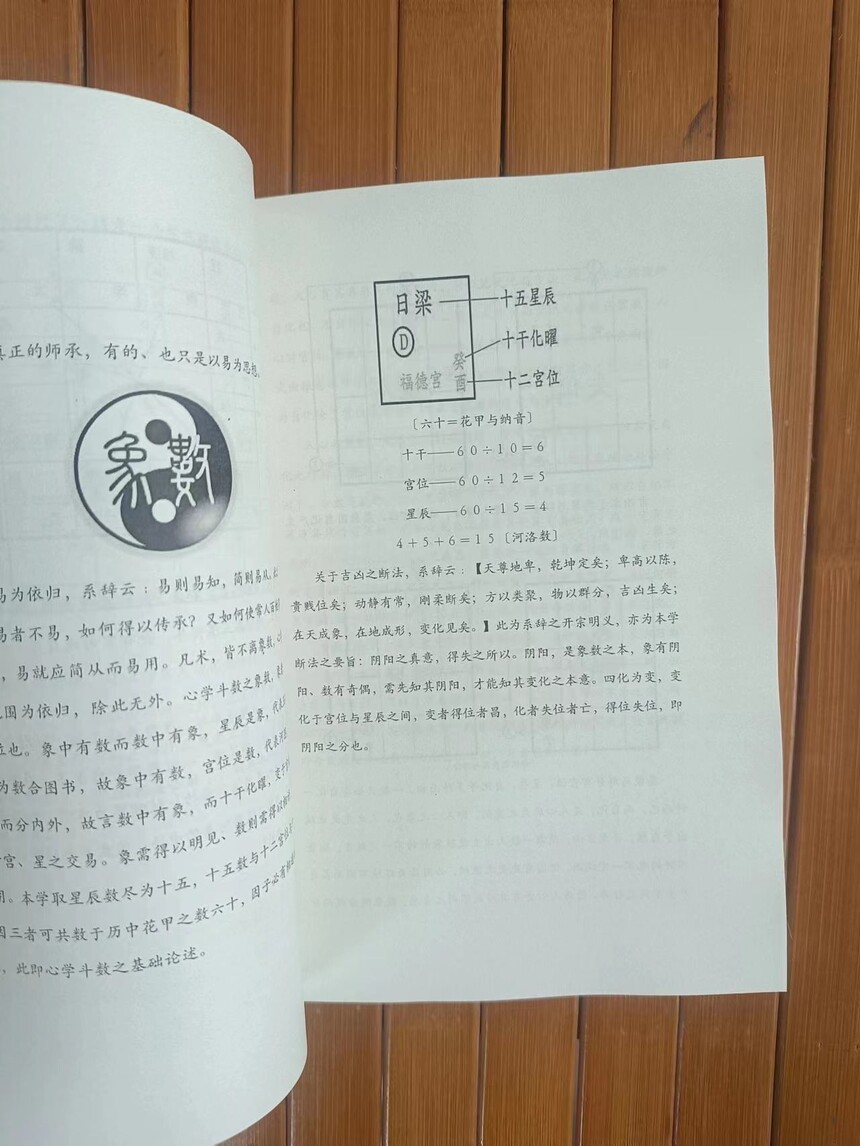 真正的师承，有的、也只是以易为思想，
象数
易为依归，系辞云：易则易知，简则易从，
易者不易，如何得以传承？又如何使常人百
，易就应简从而易用。凡术，皆不离象数，心
围为依归，除此无外。心学斗数之象数，
位也。象中有数而数中有象，星辰是象，代表
为数合图书，故象中有数，宫位是数，代表河
而分内外，故言数中有象，而十干化曜，
宫、星之交易。象需得以明见、数则需得以
用。本学取星辰数尽为十五，十五数与十二宫位
因三者可共数于历中花甲之数六十，因子必有
，此即心学斗数之基础论述。
日梁 十五星辰
D 十干化曜
福德宫 癸酉 十二宫位
〔六十＝花甲与纳音〕
十干——６０÷１０＝６
宫位——６０÷１２＝５
星辰——６０÷１５＝４
４＋５＋６＝１５〔河洛数〕
关于吉凶之断法，系辞云：【天尊地卑，乾坤定矣；卑高以陈，
贵贱位矣；动静有常，刚柔断矣；方以类聚，物以群分，吉凶生矣；
在天成象，在地成形，变化见矣。】此为系辞之开宗明义，亦为本学
断法之要旨：阴阳之真意，得失之所以。阴阳，是象数之本，象有阴
阳、数有奇偶，需先知其阴阳，才能知其变化之本意。四化为变，变
化于宫位与星辰之间，变者得位者昌，化者失位者亡，得位失位，即
阴阳之分也。